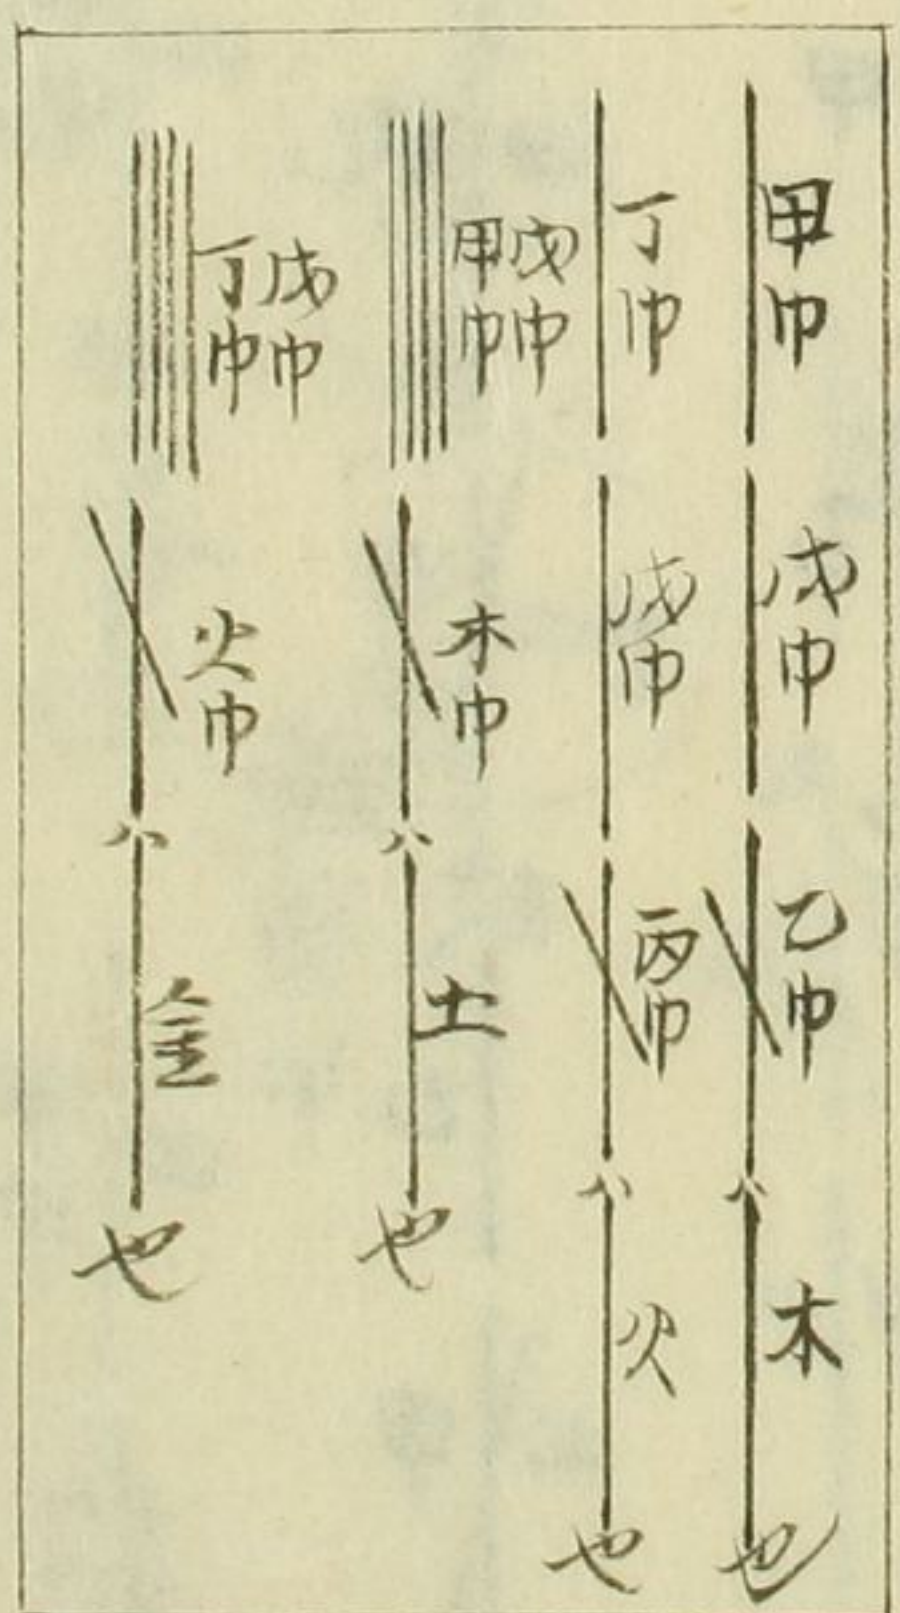 甲巾 戊巾 乙巾 ハ 木 也
丁巾 戊巾 丙巾 ハ 火 也
戊巾 甲巾 木巾 ハ 土 也
戊巾 丁巾 火巾 ハ 金 也